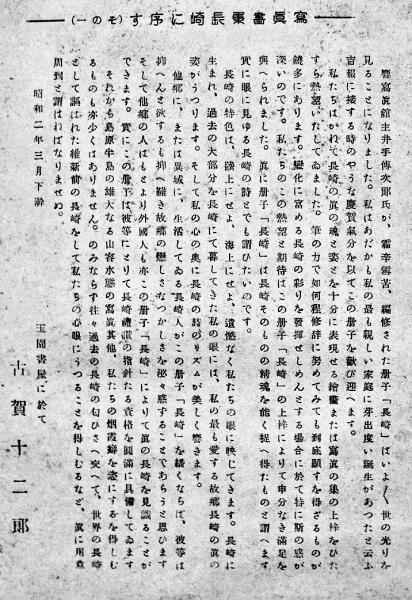 寫眞畫集長崎に序す（その一）
響寫眞館主井手傳次郎氏が、霜辛雪苦、編修された册子「長崎」はいよ〱世の光りを
見ることになりました。私はあだかも私の最も親しい家庭に芽出度い誕生があつたと云ふ
吉報に接する時のやうな慶賀氣分を以てこの册子を歡び迎へます。
私たちはかねて長崎の眞の魂と姿とを十分に表現せる繪畫または寫眞の集の上梓をひた
すら熱望いたしてゐました。筆の力で如何程修辭に努めてみても到底顯すを得ざるものが
饒多にあります。變化に富める長崎の彩りを發揮せしめんとする場合に於て特に斯の感が
深いのです。私たちのこの熱望と期待はこの册子「長崎」の上梓によりて申分なき滿足を
與へられました。眞に册子「長崎」は長崎そのものの精魂を能く捉へ得たものと謂へます
實に眼に見ゆる長崎の詩とでも謂ひたいのです。
長崎の特色は、陸上にせよ、海上にせよ、遺憾なく私たちの眼に映じてきます。長崎に
生まれ、過去の大部分を長崎にて暮してきた私の眼には、私の最も愛する故鄕長崎の眞の
姿がうつります。そして私の心の奧に長崎の詩のリズムが美しく響きます。
他鄕に、または異域に生活してゐる長崎人がこの册子「長崎」を繙くならば、彼等は
抑へんと欲するも抑へ難き故鄕の戀しさなつかしさを深々感ずることであらうと思ひます
そして他鄕の人はもとより外國人も亦この册子「長崎」によりて眞の長崎を見識ることが
できます。實にこの册子は彼等にとりて長崎禮讃の指針たる資格を圓滿に具備してゐます
それから島原半島の雄大なる山容水態の寫眞其他、私たちの烟霞癖を恣にするを得しむ
るものも亦少くはありません。のみならず往々過去の長崎の匂ひさへ突へて、世界の長崎
として謳はれた維新前の長崎をして私たちの心眼にうつることを得しむるなど、眞に用意
周到と謂はねばなりませぬ。
昭和二年三月下澣
玉園書屋に於て
古賀十二郎